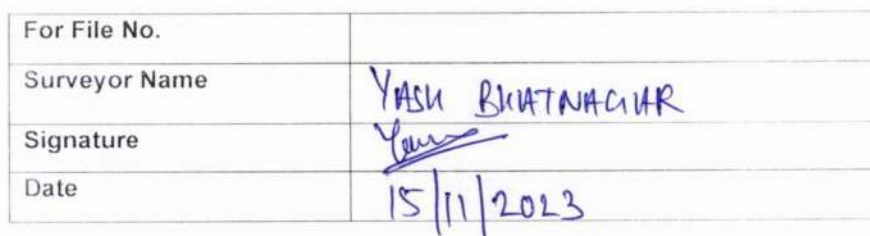 For File No.
Surveyor Name YASH BHATNAGAR
Signature Yash
Date 15/11/2023